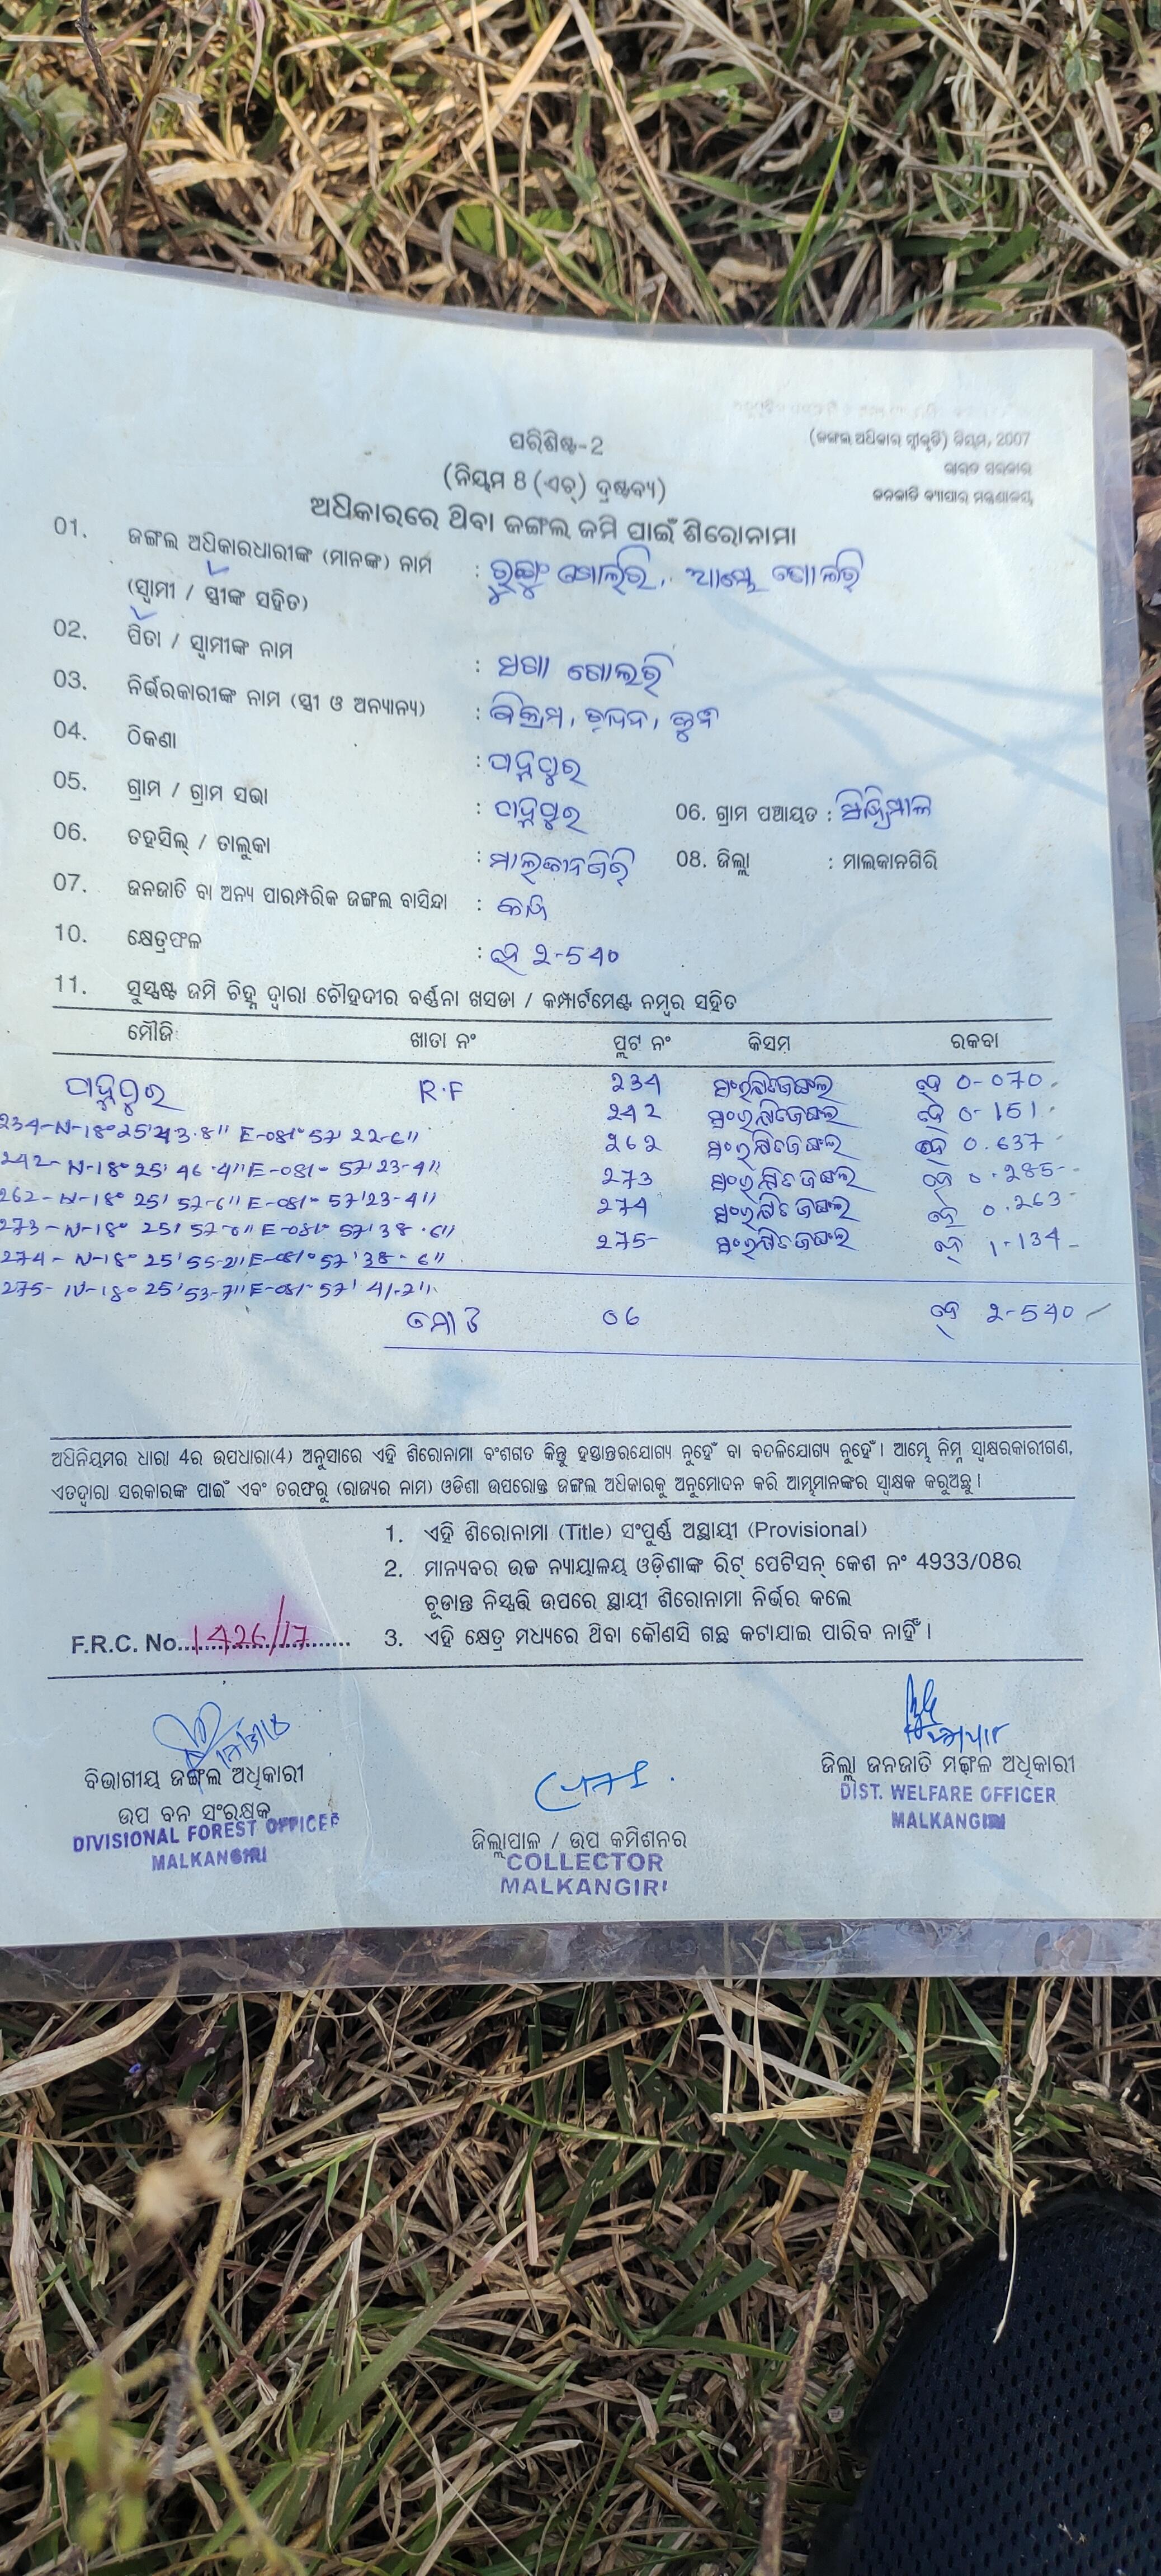 ପରିଶିଷ୍ଟ-2
(ଜଙ୍ଗଲ ଅଧିକାର ସ୍ୱୀକୃତି) ନିୟମ, 2007
(ନିୟମ 8 (ଏଚ୍) ଦ୍ରଷ୍ଟବ୍ୟ)
ଭାରତ ସରକାର
ଜନଜାତି ବ୍ୟାପାର ମନ୍ତ୍ରଣାଳୟ
ଅଧିକାରରେ ଥିବା ଜଙ୍ଗଲ ଜମି ପାଇଁ ଶିରୋନାମା
01. ଜଙ୍ଗଲ ଅଧିକାରଧାରୀଙ୍କ (ମାନଙ୍କ) ନାମ :
(ସ୍ୱାମୀ / ସ୍ତ୍ରୀଙ୍କ ସହିତ)
02. ପିତା / ସ୍ୱାମୀଙ୍କ ନାମ :
03. ନିର୍ଭରକାରୀଙ୍କ ନାମ (ସ୍ତ୍ରୀ ଓ ଅନ୍ୟାନ୍ୟ) : ବିକ୍ରମ,
04. ଠିକଣା :
05. ଗ୍ରାମ / ଗ୍ରାମ ସଭା : 06. ଗ୍ରାମ ପଞ୍ଚାୟତ :
06. ତହସିଲ୍ / ତାଲୁକା : ମାଲକାନଗିରି 08. ଜିଲ୍ଲା : ମାଲକାନଗିରି
07. ଜନଜାତି ବା ଅନ୍ୟ ପାରମ୍ପରିକ ଜଙ୍ଗଲ ବାସିନ୍ଦା :
10. କ୍ଷେତ୍ରଫଳ : ହେ ୨-540
11. ସୁସ୍ପଷ୍ଟ ଜମି ଚିହ୍ନ ଦ୍ୱାରା ଚୌହଦୀର ବର୍ଣ୍ଣନା ଖସଡା / କମ୍ପାର୍ଟମେଣ୍ଟ ନମ୍ବର ସହିତ
ମୌଜି ଖାତା ନଂ ପ୍ଲଟ ନଂ କିସମ ରକବା
R.F ୨34 ସଂରକ୍ଷିତ ଜଙ୍ଗଲ ହେ 0-070
୨4୨ ସଂରକ୍ଷିତ ଜଙ୍ଗଲ ହେ 0-151
234-N-18° 25' 43.8" E-081° 57' 22-6"
୨6୨ ସଂରକ୍ଷିତ ଜଙ୍ଗଲ ହେ 0.637
242-N-18° 25' 46.4" E-081° 57' 23-4"
୨73 ସଂରକ୍ଷିତ ଜଙ୍ଗଲ ହେ 0.285
262-N-18° 25' 57-6" E-081° 57' 23-4"
୨74 ସଂରକ୍ଷିତ ଜଙ୍ଗଲ ହେ 0.263
273-N-18° 25' E-081° 57' 38.6"
୨75 ସଂରକ୍ଷିତ ଜଙ୍ଗଲ ହେ 1-134
274-N-18° 25' 55-2" E-081° 57' 38-6"
275-N-18° 25' 53-7" E-081° 57' 41-2"
ମୋଟ 06 ହେ ୨-540
ଅଧିନିୟମର ଧାରା 4ର ଉପଧାରା(4) ଅନୁସାରେ ଏହି ଶିରୋନାମା ବଂଶଗତ କିନ୍ତୁ ହସ୍ତାନ୍ତରଯୋଗ୍ୟ ନୁହେଁ ବା ବଦଳିଯୋଗ୍ୟ ନୁହେଁ । ଆମ୍ଭେ ନିମ୍ନ ସ୍ୱାକ୍ଷରକାରୀଗଣ,
ଏତଦ୍ଦ୍ୱାରା ସରକାରଙ୍କ ପାଇଁ ଏବଂ ତରଫରୁ (ରାଜ୍ୟର ନାମ) ଓଡିଶା ଉପରୋକ୍ତ ଜଙ୍ଗଲ ଅଧିକାରକୁ ଅନୁମୋଦନ କରି ଆମ୍ଭମାନଙ୍କର ସ୍ୱାକ୍ଷକ କରୁଅଛୁ ।
1. ଏହି ଶିରୋନାମା (Title) ସଂପୂର୍ଣ୍ଣ ଅସ୍ଥାୟୀ (Provisional)
2. ମାନ୍ୟବର ଉଚ୍ଚ ନ୍ୟାୟାଳୟ ଓଡ଼ିଶାଙ୍କ ରିଟ୍ ପେଟିସନ୍ କେଶ ନଂ 4933/08ର
ଚୂଡାନ୍ତ ନିସ୍ପତ୍ତି ଉପରେ ସ୍ଥାୟୀ ଶିରୋନାମା ନିର୍ଭର କଲେ
F.R.C. No. 1426/17
3. ଏହି କ୍ଷେତ୍ର ମଧ୍ୟରେ ଥିବା କୌଣସି ଗଛ କଟାଯାଇ ପାରିବ ନାହିଁ ।
ବିଭାଗୀୟ ଜଙ୍ଗଲ ଅଧିକାରୀ
ଉପ ବନ ସଂରକ୍ଷକ
DIVISIONAL FOREST OFFICER
MALKANGIRI
ଜିଲ୍ଲାପାଳ / ଉପ କମିଶନର
COLLECTOR
MALKANGIRI
ଜିଲ୍ଲା ଜନଜାତି ମଙ୍ଗଳ ଅଧିକାରୀ
DIST. WELFARE OFFICER
MALKANGIRI